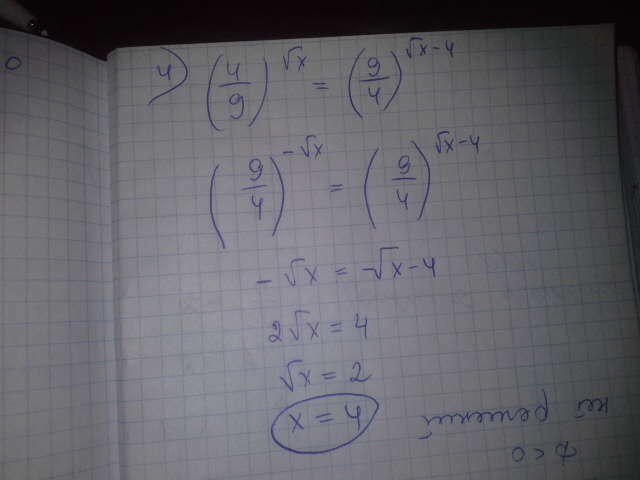 4) (4/9)^√x = (9/4)^√x-4
(9/4)^-√x = (9/4)^√x-4
-√x = -√x-4
2√x = 4
√x = 2
x = 4
решений